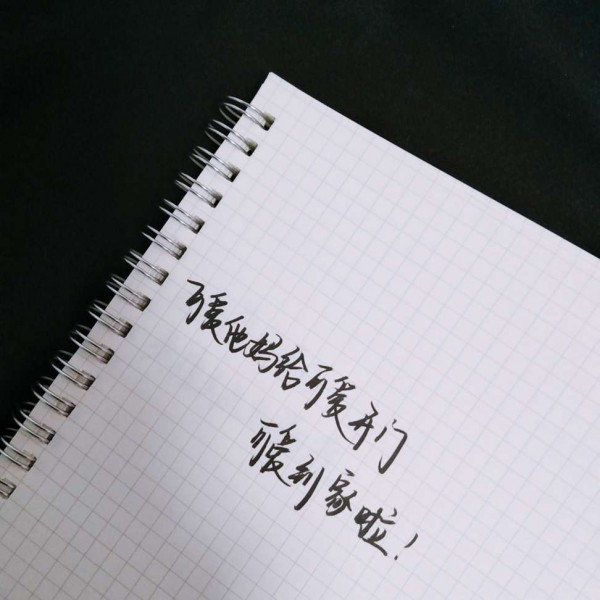 可爱他妈给可爱开门
可爱到家啦！